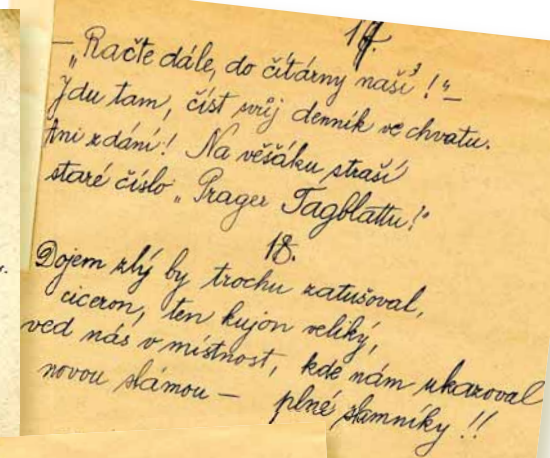 17.
— „Račte dále, do čítárny naší! “ —
Jdu tam, číst svůj denník ve chvatu.
Ani zdání! Na věšáku straší
staré číslo „Prager Tagblattu!“
18.
Dojem zlý by trochu zatušoval,
ciceron, ten kujon veliký,
ved nás v místnost, kde nám ukazoval
novou slámou — plné slamníky!!